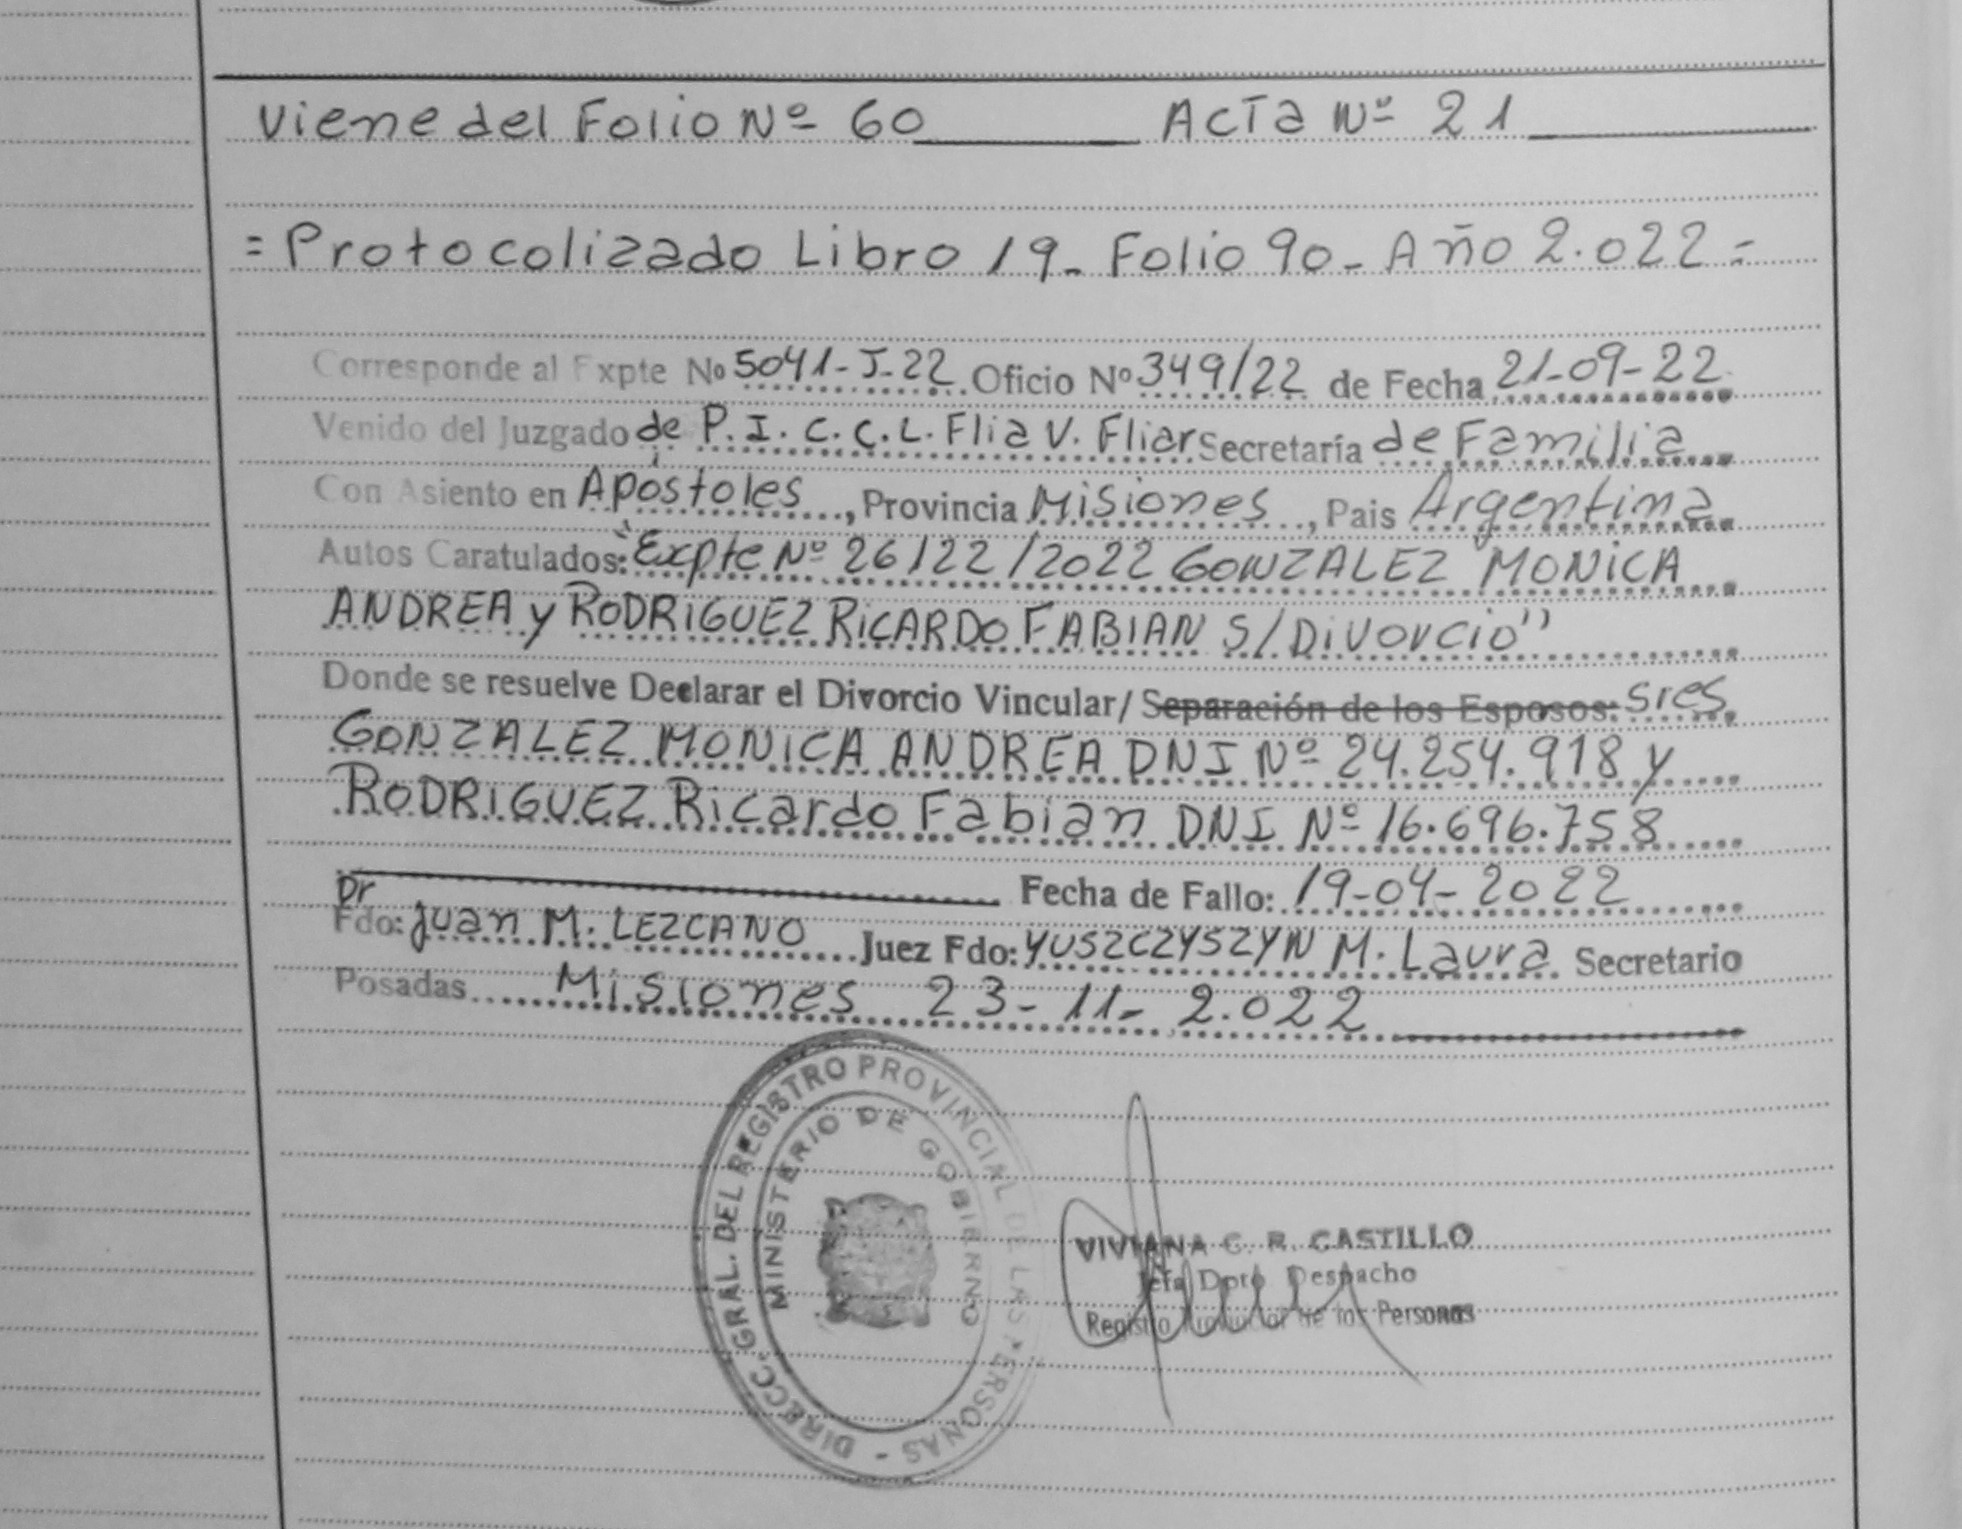 Viene del Folio Nº 60 ACTa Nº 21
= Protocolizado Libro 19 - Folio 90 - Año 2.022 =
Corresponde al Expte Nº 5041-J-22 Oficio Nº 349/22 de Fecha 21-09-22
Venido del Juzgado de P.I.C.C.L. Flia V. Fliar Secretaría de Familia
Con Asiento en Apóstoles, Provincia Misiones, Pais Argentina
Autos Caratulados: "Expte Nº 26122/2022 GONZALEZ MONICA
ANDREA y RODRIGUEZ RICARDO FABIAN S/Divorcio"
Donde se resuelve Declarar el Divorcio Vincular/ Separación de los Esposos: Sres
GONZALEZ MONICA ANDREA DNI Nº 24.254.918 y
RODRIGUEZ Ricardo Fabian DNI Nº 16.696.758
Fecha de Fallo: 19-04-2022
Dr
Fdo: Juan M. LEZCANO Juez Fdo: YUSZCZYSZYN M. Laura Secretario
Posadas Misiones 23-11-2.022
DIRECC. GRAL. DEL REGISTRO PROVINCIAL DE LAS PERSONAS -
MINISTERIO DE GOBIERNO
VIVIANA C. R. CASTILLO
Jefa Dpto Despacho
Registro Provincial de las Personas